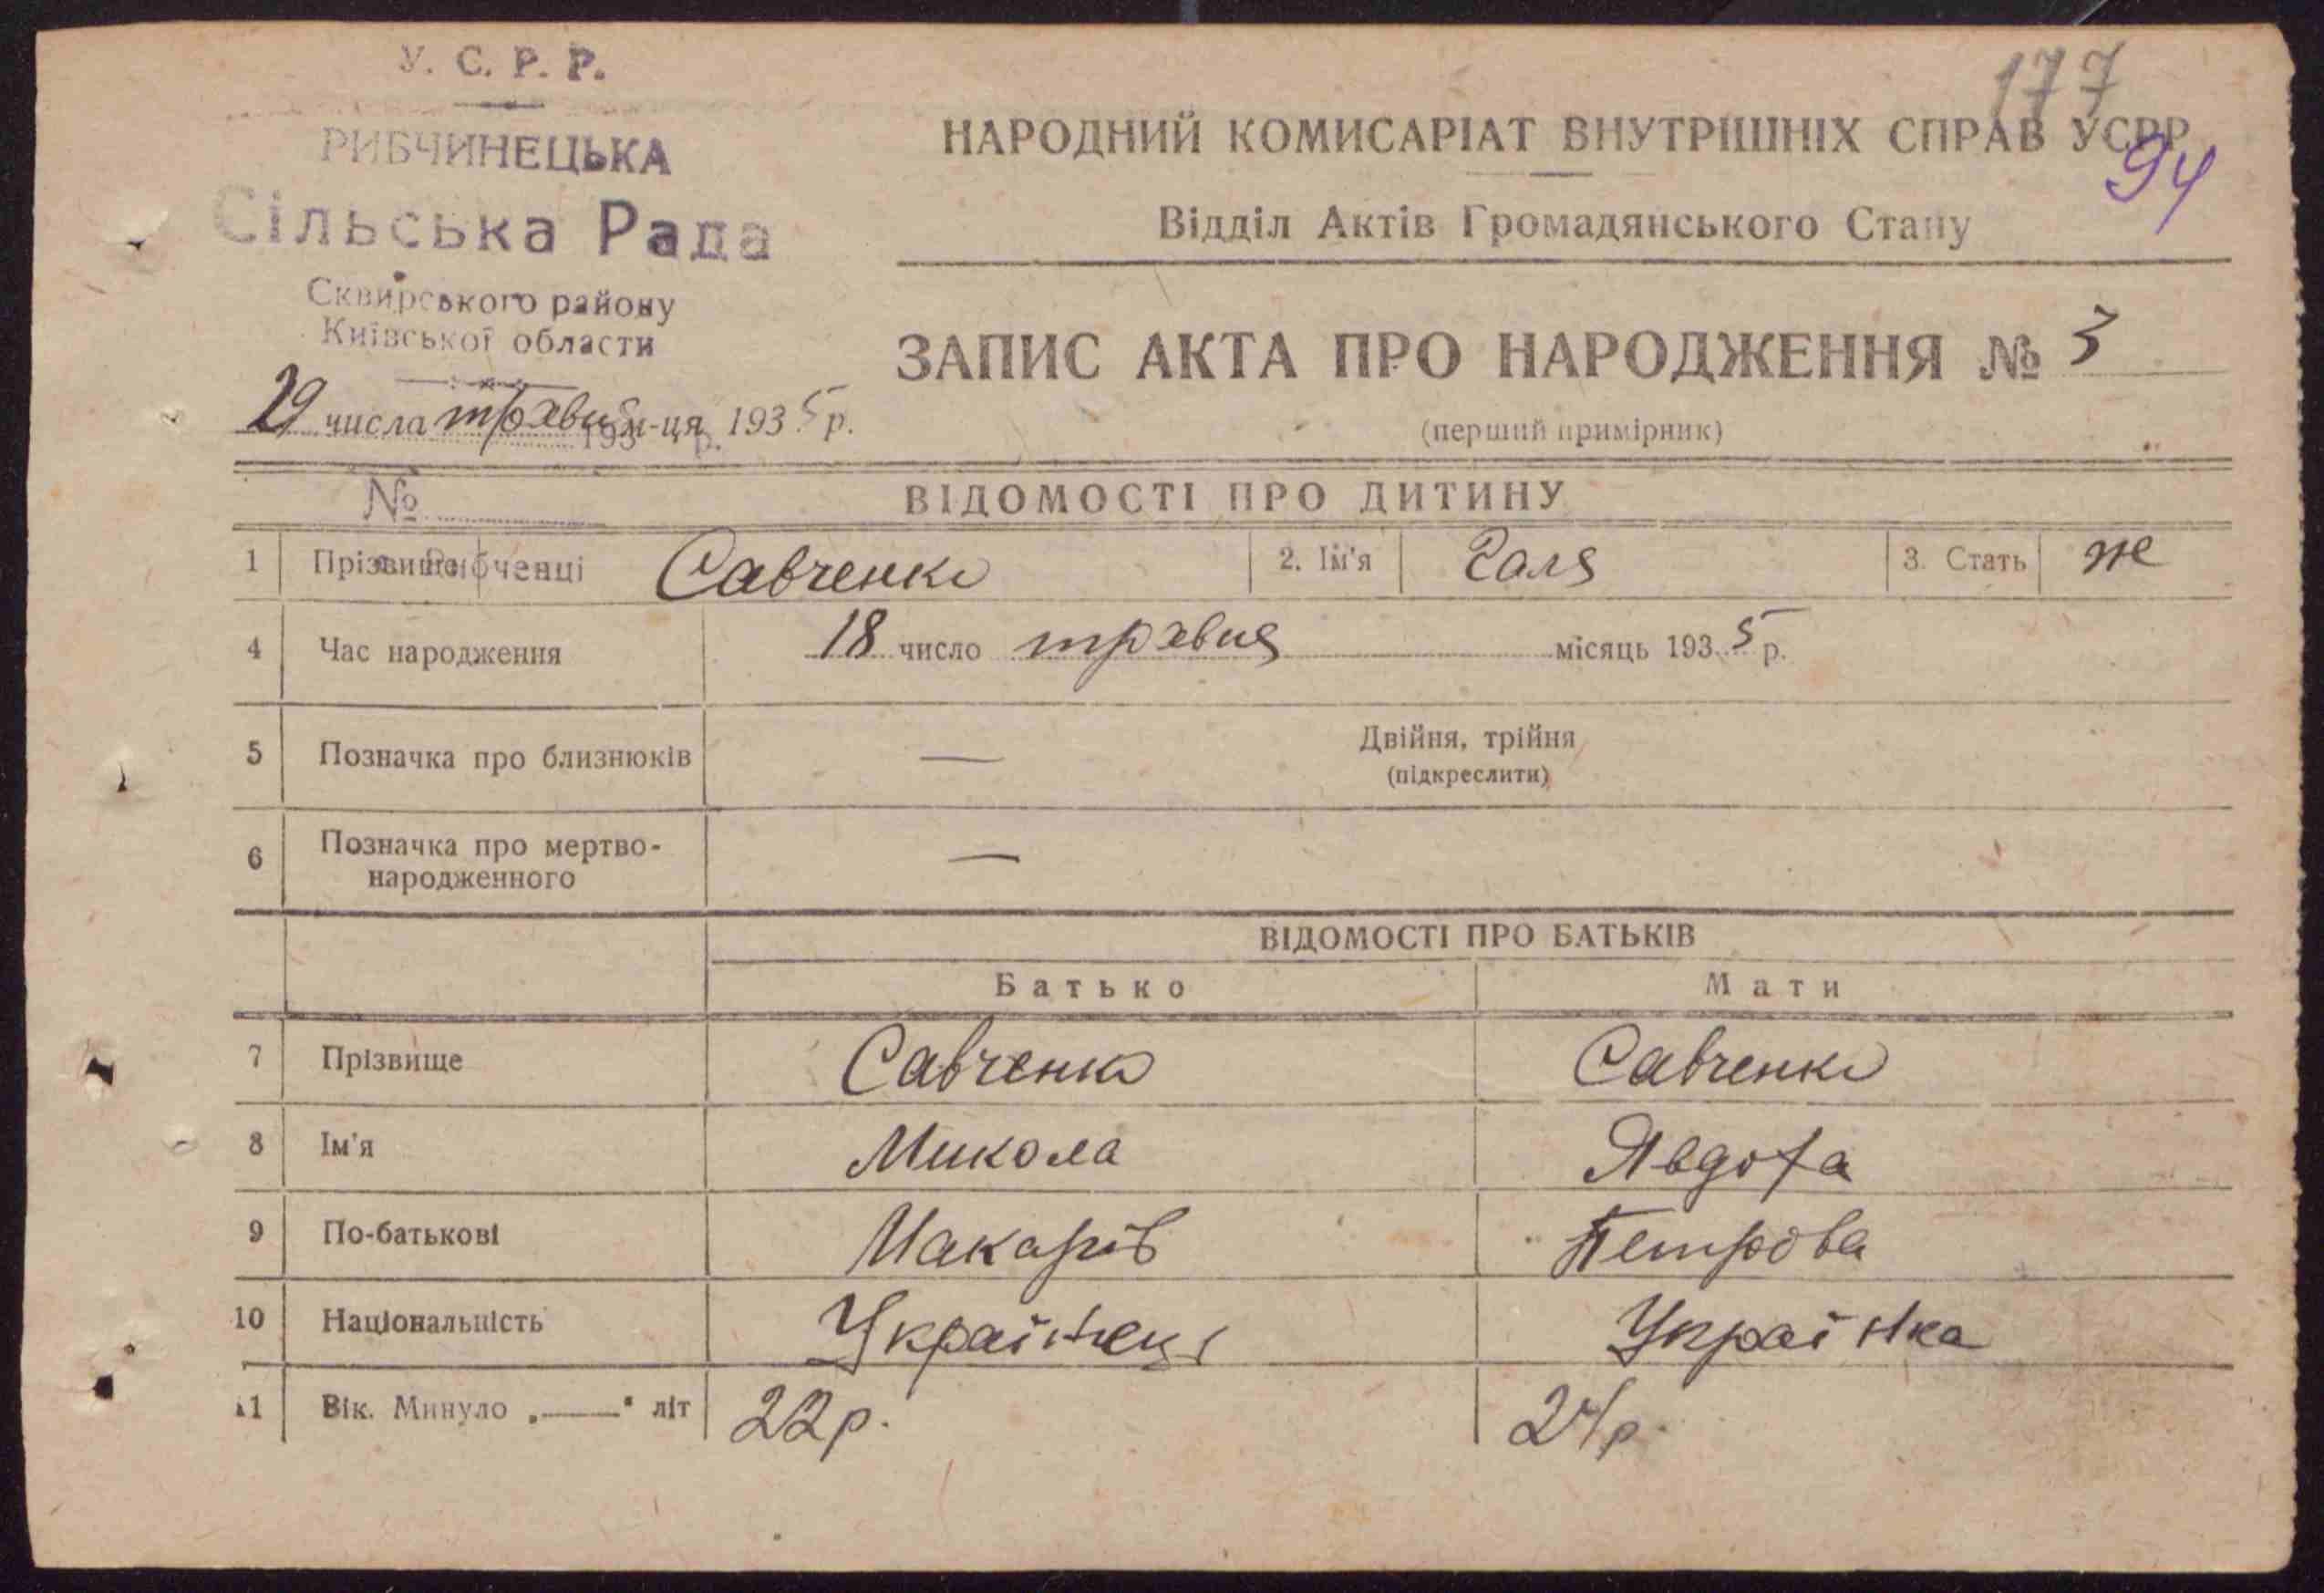 177
94
У. С. Р. Р.
РИБЧИНЕЦЬКА
Сільська Рада
Сквирського району
Київської области
29 числа травня м-ця 1935 р.
193 р.
№
с. Рибченці
НАРОДНИЙ КОМИСАРІАТ ВНУТРІШНІХ СПРАВ УСРР
Відділ Актів Громадянського Стану
ЗАПИС АКТА ПРО НАРОДЖЕННЯ № 3
(перший примірник)
ВІДОМОСТІ ПРО ДИТИНУ
1 Прізвище Савченко 2. Ім'я Галя 3. Стать ж
4 Час народження 18 число травня місяць 1935 р.
5 Позначка про близнюків — Двійня, трійня
(підкреслити)
6 Позначка про мертво-
народженного —
ВІДОМОСТІ ПРО БАТЬКІВ
Батько Мати
7 Прізвище Савченко Савченко
8 Ім'я Микола Явдоха
9 По-батькові Макарів Петрова
10 Національність Українець Українка
11 Вік. Минуло „——" літ 22 р. 24 р.